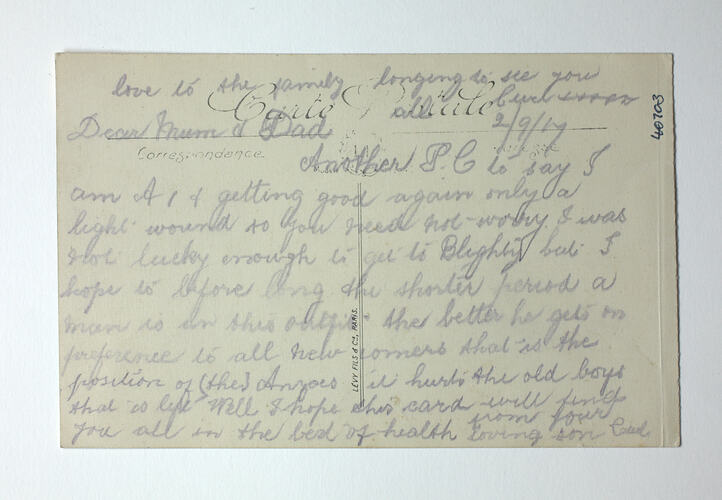 love to the family longing to see you
all Cecil xxxxx
Carte Postale
Dear Mum & Dad 2/9/17
Correspondance
Another P.C to say I
am A 1 & getting good again only a
light wound so you need not worry I was
not lucky enough to get to Blighty but I
hope to before long the shorter period a
man is in this outfit the better he gets on
preference to all new comers that is the
position of (the) Anzacs it hurts the old boys
that is left Well I hope this card will find
you all in the best of health from your
loving son Cecil
LÉVY FILS & Cie, PARIS.
40703